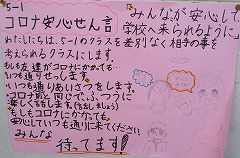 5-1
コロナ安心せん言
「みんなが安心して
学校へ来られるように」
わたしたちは、5-1のクラスを差別なく相手の事を
考えられるクラスにします。
もしも友達がコロナにかかっても…
・いつも通りせっします。
・いつも通りあいさつをします。
・コロナ前と同じでふつうに
もしもコロナにかかっても、
安心していつも通りに来てください
みんな
待ってます!